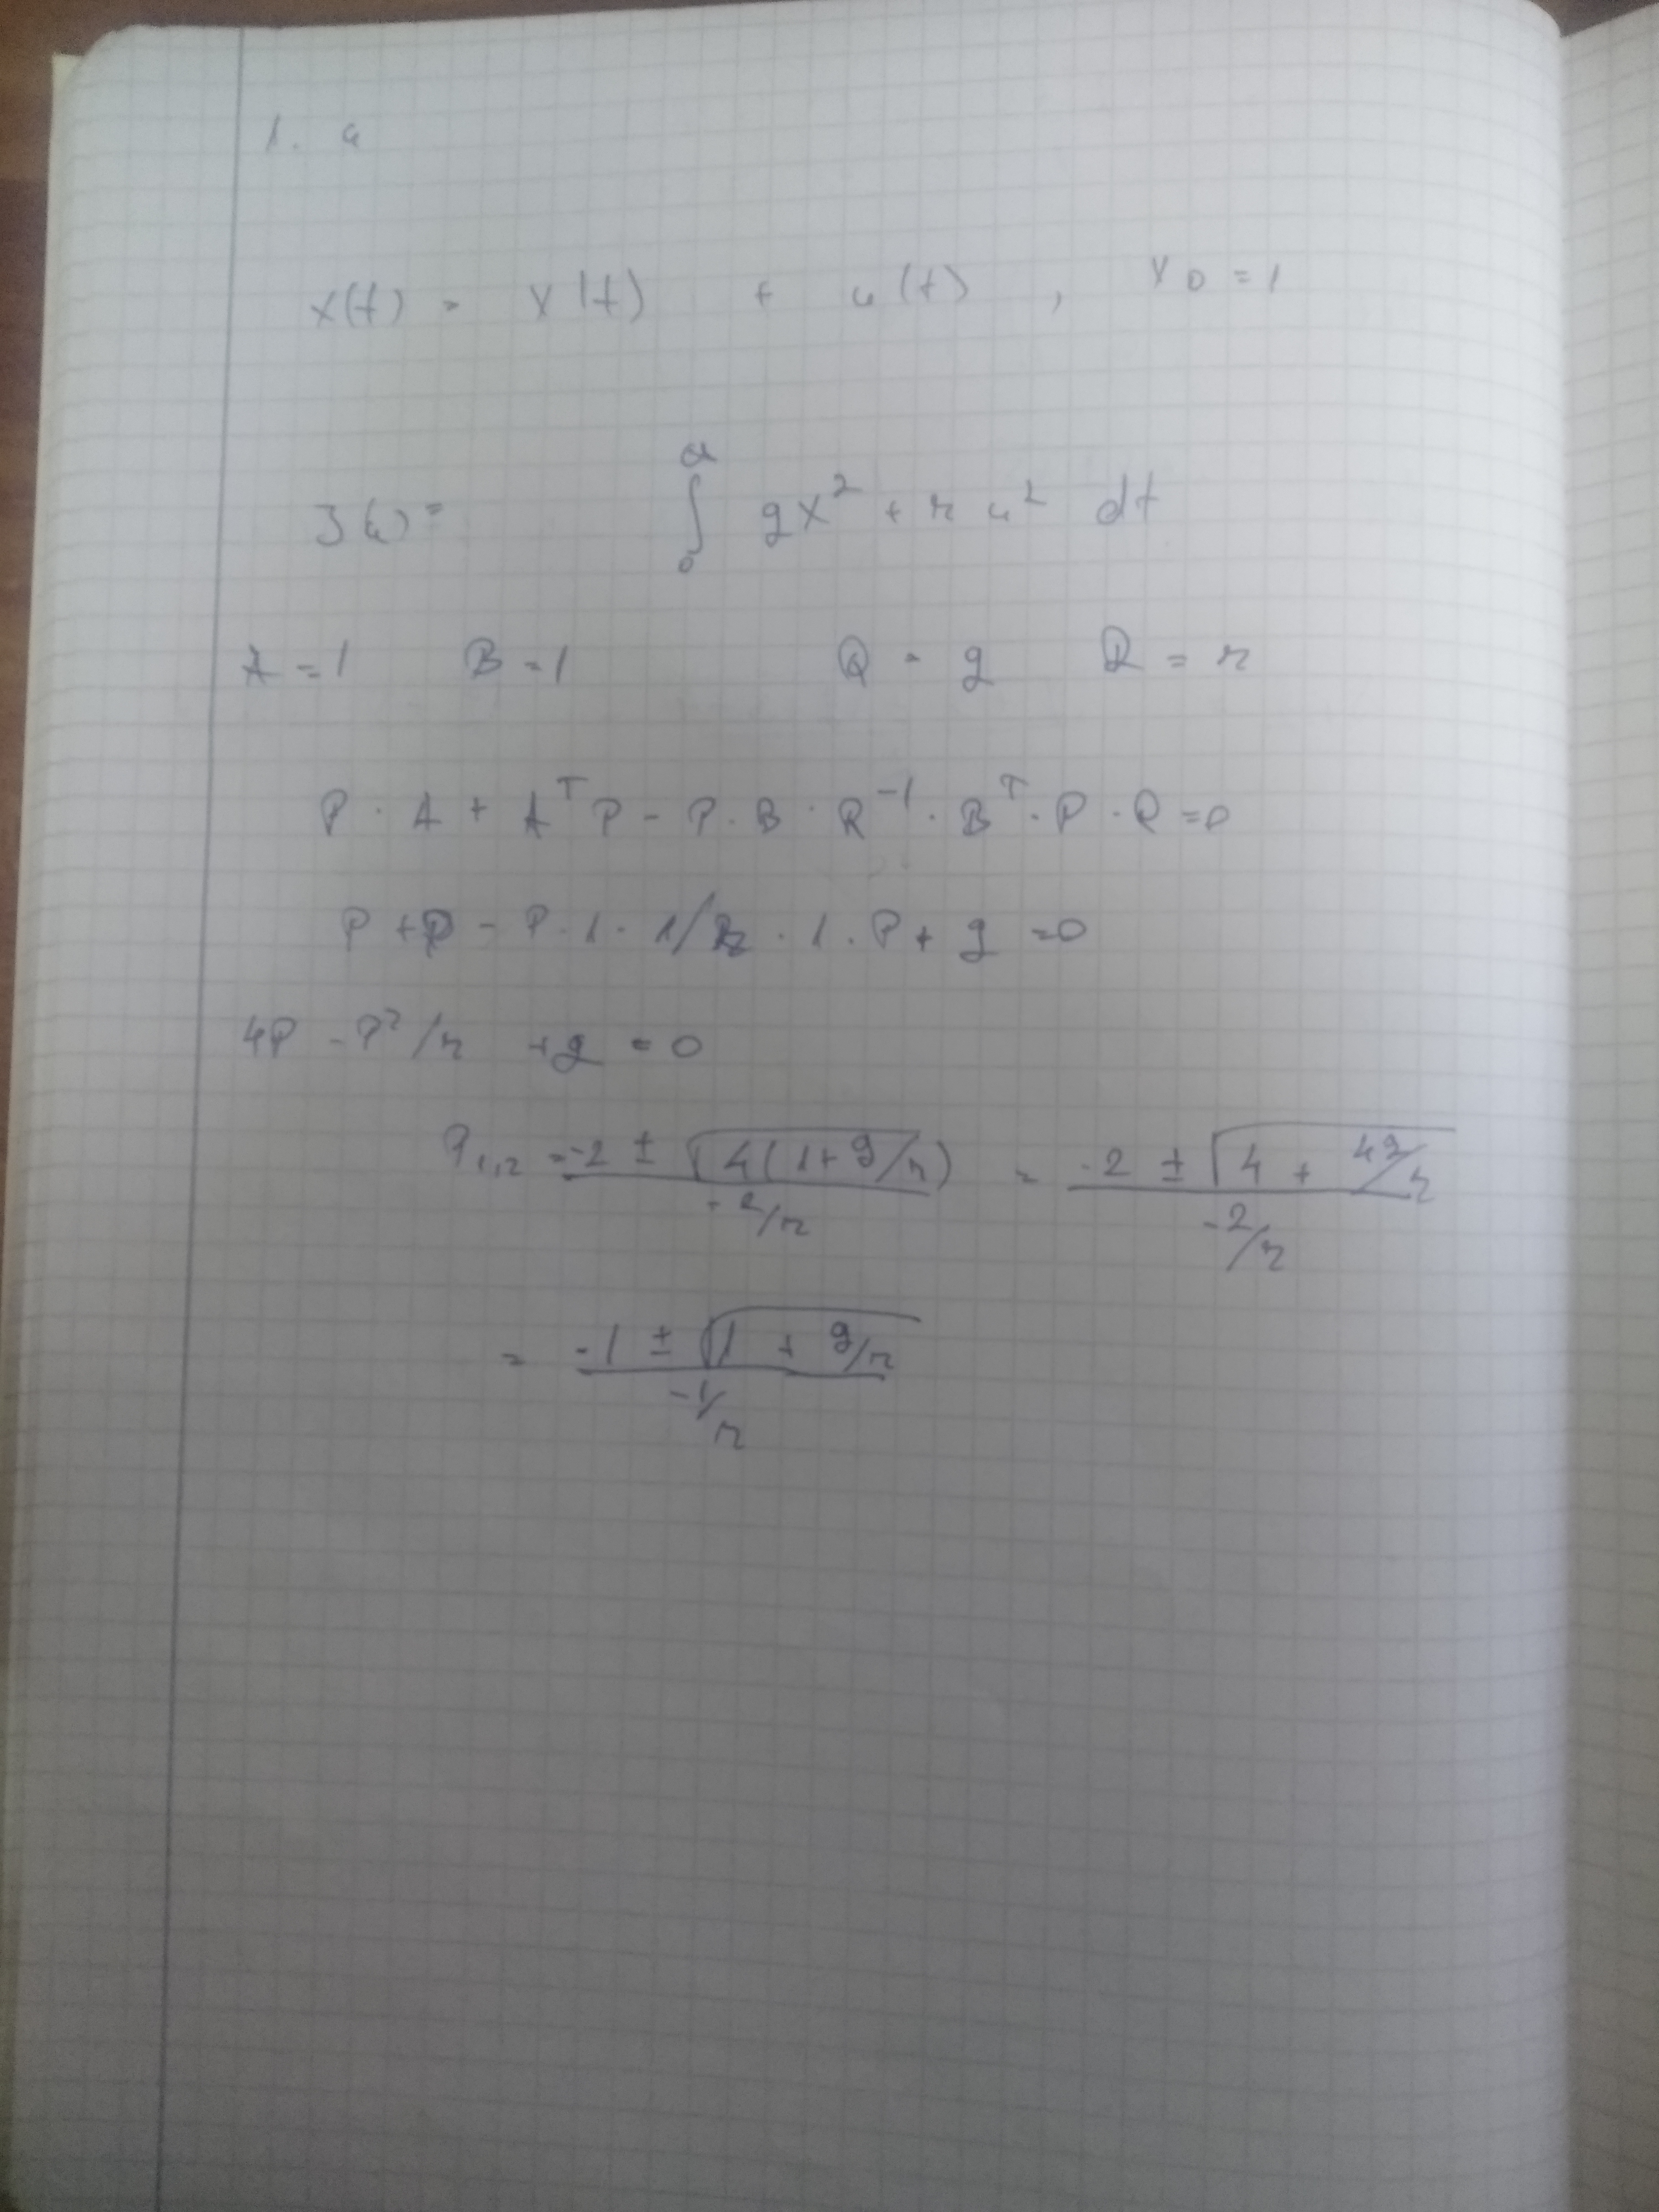 1. a
x(t) = x(t) + u(t) , x0 = 1
J(u) = ∫₀^∞ qx² + r u² dt
A = 1 B = 1 Q = q R = r
P · A + Aᵀ P - P · B · R⁻¹ · Bᵀ · P · Q = 0
P + P - P · 1 · 1/r · 1 · P + q = 0
4P - P²/r + q = 0
P₁,₂ = (-2 ± √(4(1 + q/r))) / (-2/r) = (-2 ± √(4 + 4q/r)) / (-2/r)
= (-1 ± √(1 + q/r)) / (-1/r)